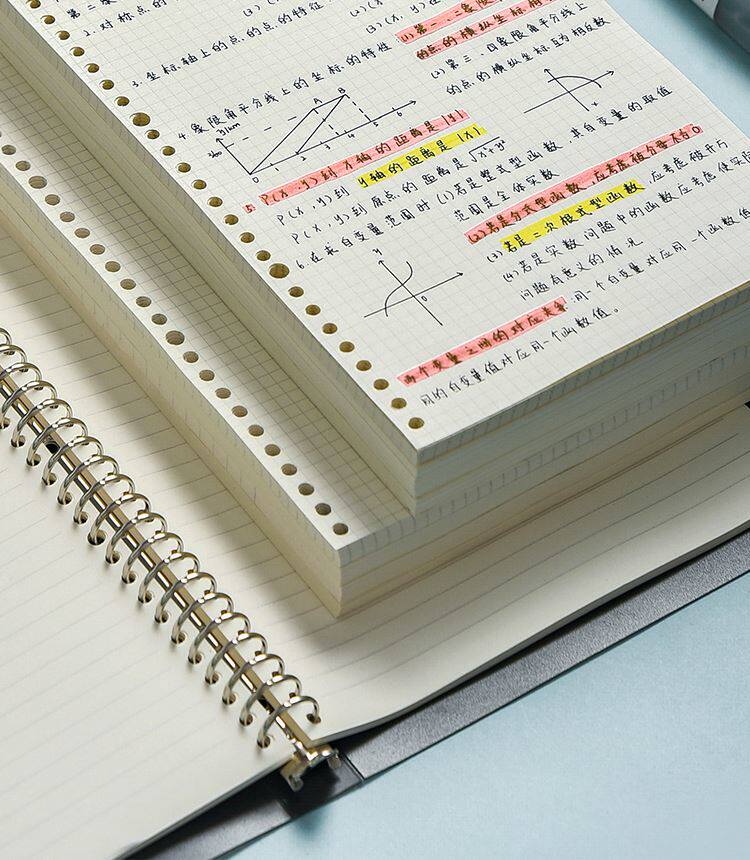 2. 对称点的
3. 坐标轴上的点的点的特征
(1) 第一、三象限
的点的横纵坐标相
(2) 第二、四象限角平分线上
的点的横纵坐标互为相反数
4. 象限角平分线上的坐标的特性
S/km
A
B
0 1 2 3 4 5 6
5. P(x, y) 到 x 轴的距离是 |y|
P(x, y) 到 y 轴的距离是 |x|
P(x, y) 到原点的距离是 √x²+y²
6. 在求自变量范围时 (1) 若是整式型函数, 其自变量的取值
范围是全体实数
(2) 若是分式型函数, 应考虑使分母不为0
(3) 若是二次根式型函数, 应考虑被开方
(4) 若是实数问题中的函数应考虑使实际
问题有意义的情况
y
x
0
两个变量之间的对应关系 同一个自变量对应用一个函数值
同的自变量值对应同一个函数值。